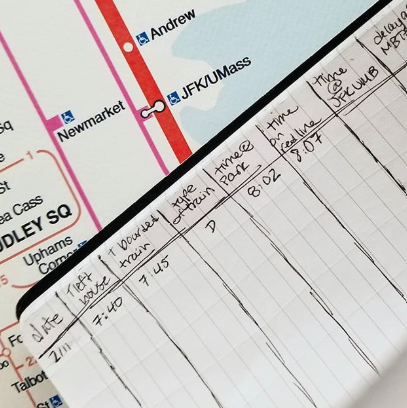 Andrew
JFK/UMass
Newmarket
1
St
ea Cass
DLEY SQ
Uphams
Talbot
St
date
I left
house
I boarded
train
type
of train
time@
Park
time
on
redline
time
@
JFK UMB
delays
2/11
7:40
7:45
D
8:02
8:07